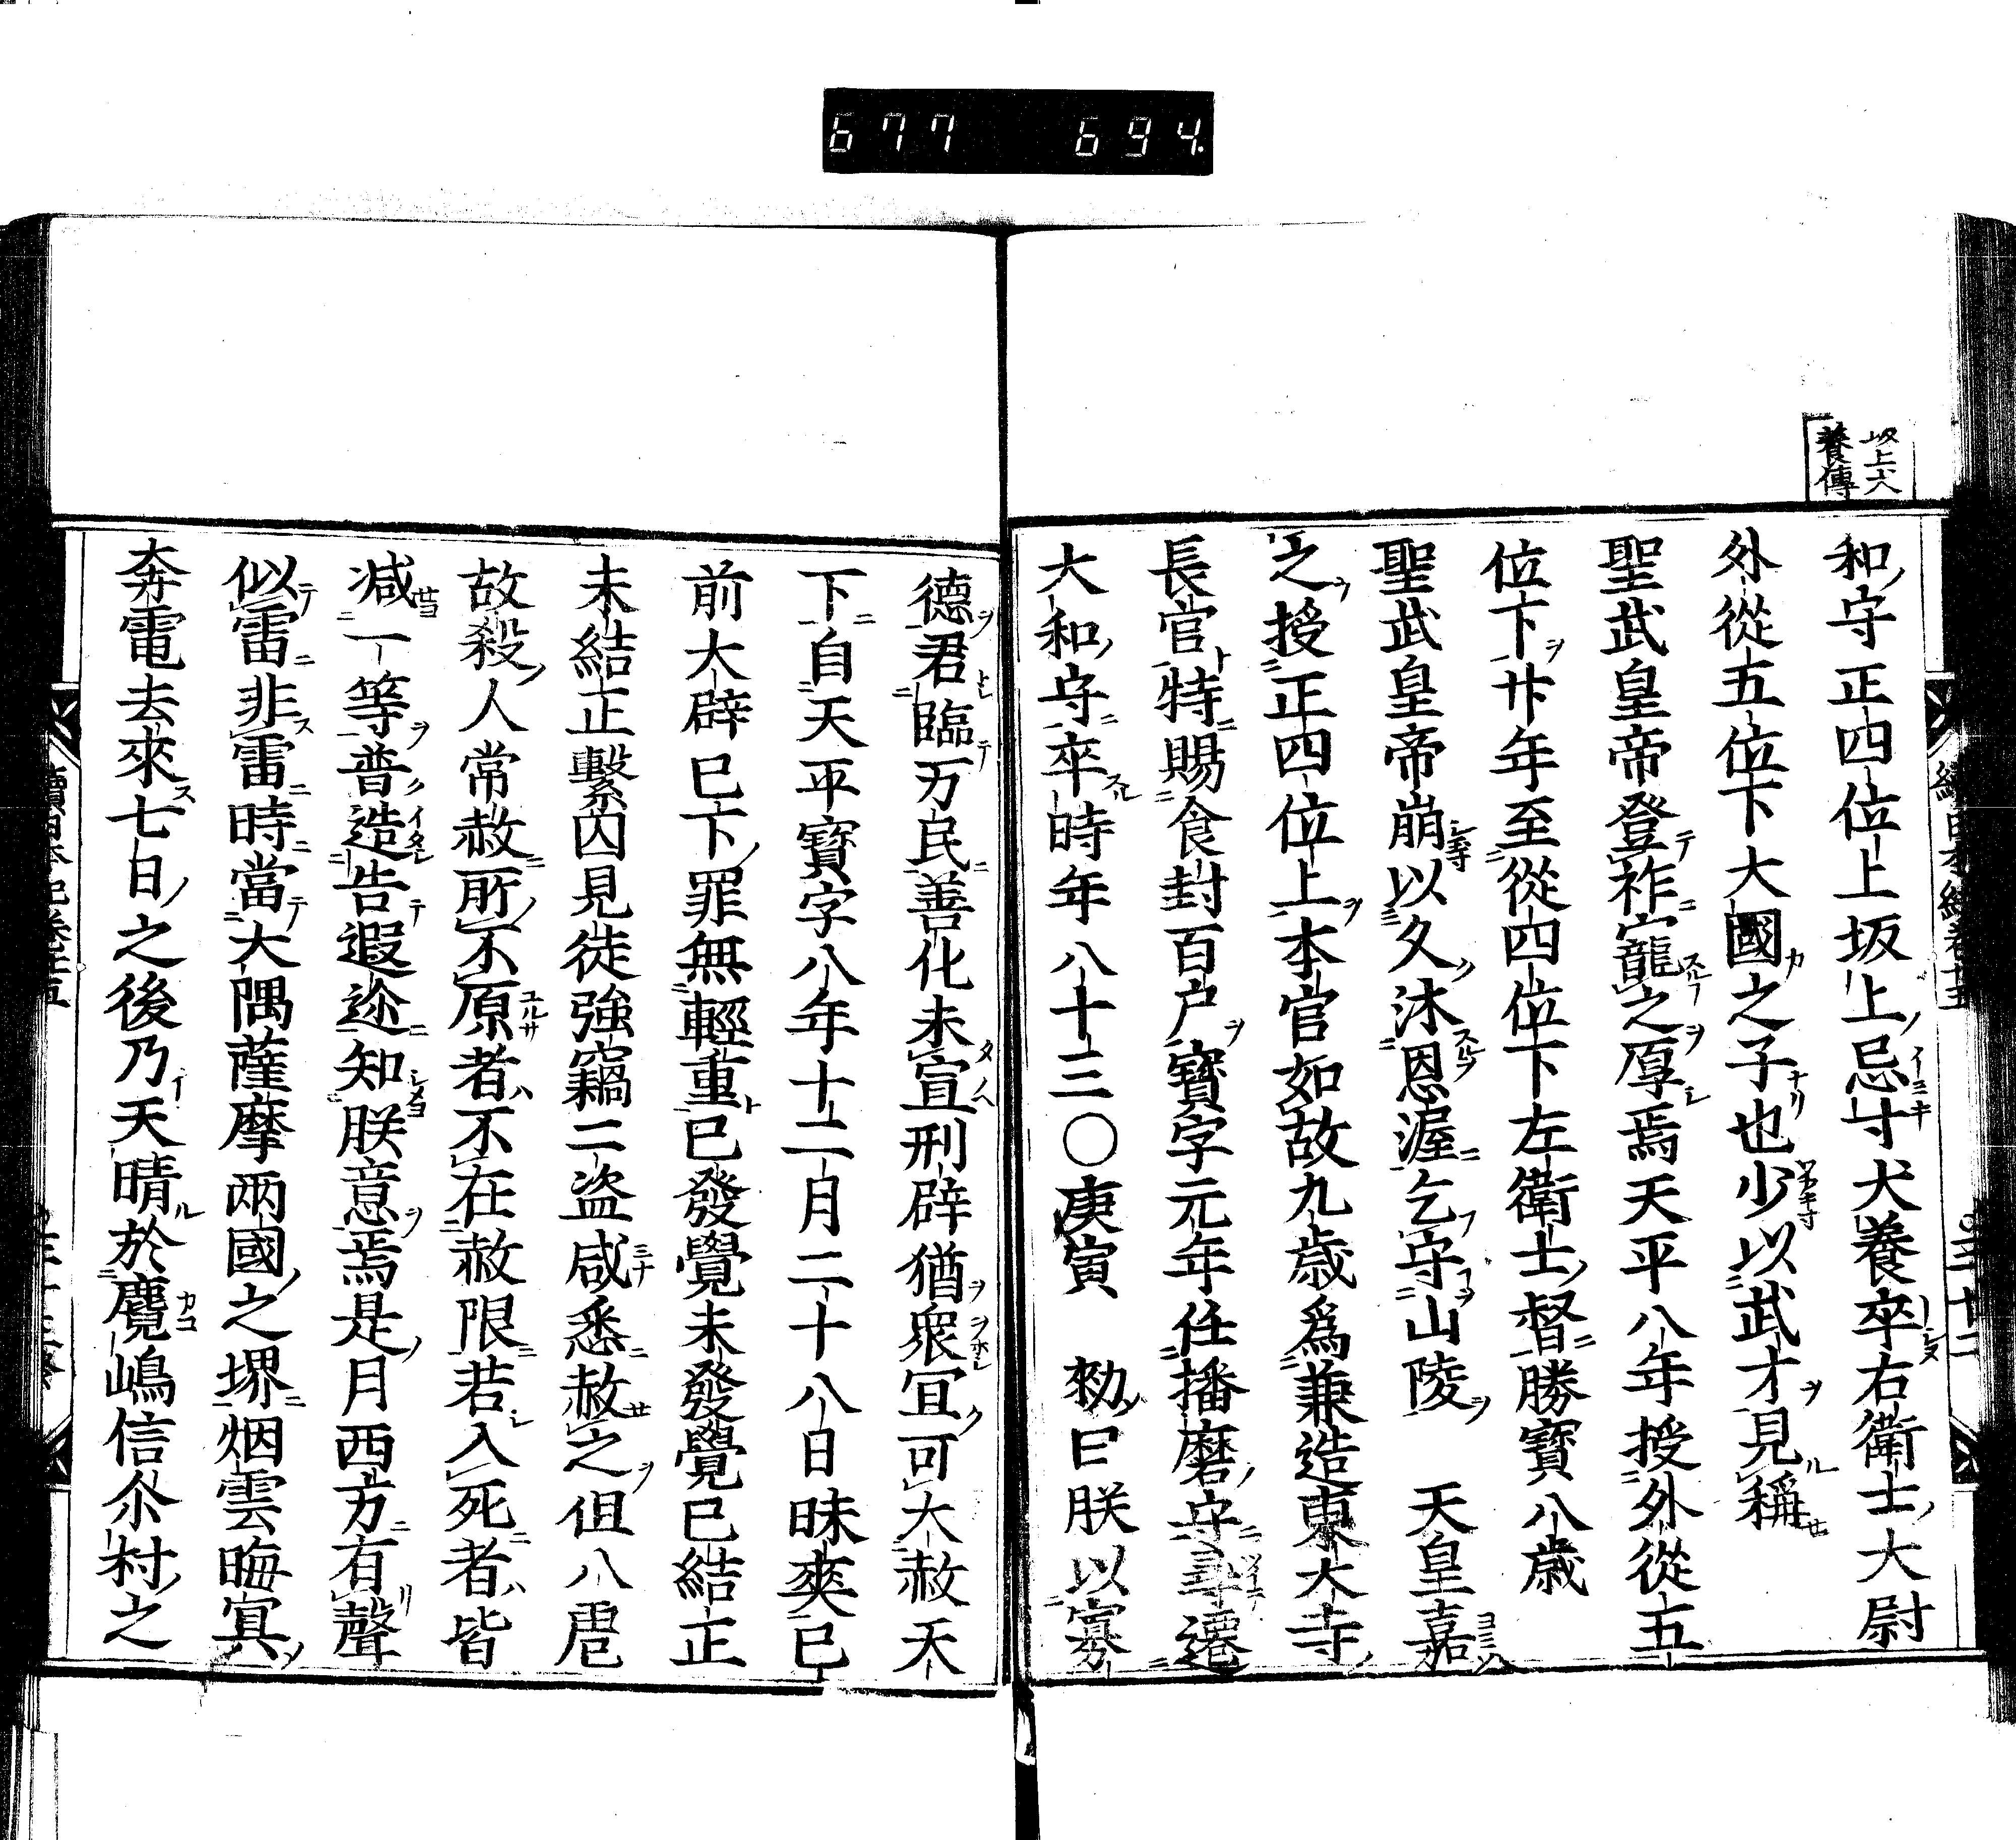 677 694.
以上犬
養傳
和守正四位上坂上忌寸犬養卒右衛士大尉
外從五位下大國之子也少以武才見稱
聖武皇帝登祚寵之厚焉天平八年授外從五
位下廿年至從四位下左衛士督勝寶八歳
聖武皇帝崩以久沐恩渥乞守山陵　天皇嘉
之授正四位上本官如故九歳爲兼造東大寺
長官特賜食封百戸寶字元年任播磨守尋遷
大和守卒時年八十三〇庚寅　勑曰朕以寡
德君臨万民善化未宣刑辟猶衆宜可大赦天
下自天平寳字八年十二月二十八日昧爽已
前大辟已下罪無輕重已發覺未發覺已結正
未結正繫囚見徒強竊二盗咸悉赦之但八虐
故殺人常赦所不原者不在赦限若入死者皆
减一等普造告遐迩知朕意焉是月西方有聲
似雷非雷時當大隅薩摩兩國之堺烟雲晦冥
奔電去來七日之後乃天晴於麑嶋信尒村之